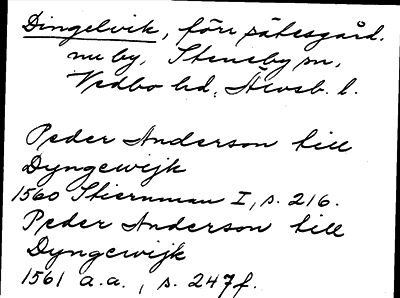 Dingelvik, förr sätesgård.
nu by, Steneby sn,
Vedbo hd, Älvsb. l.
Peder Anderson till
Dyngewijk
1560 Stiernman I, s. 216.
Peder Anderson till
Dyngewijk
1561 a.a., s. 247f.